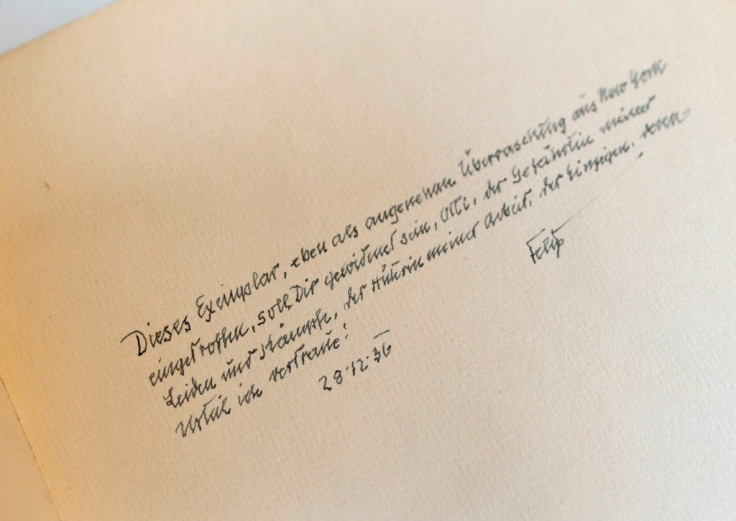 Dieses Exemplar, eben als angenehme Überraschung aus New York
eingetroffen, soll Dir gewidmet sein, Olli, der Gefährtin meiner
Leiden und Kämpfe, der Hüterin meiner Arbeit, der Einzigen, deren
Urteil ich vertraue!
Felix
28.12.36